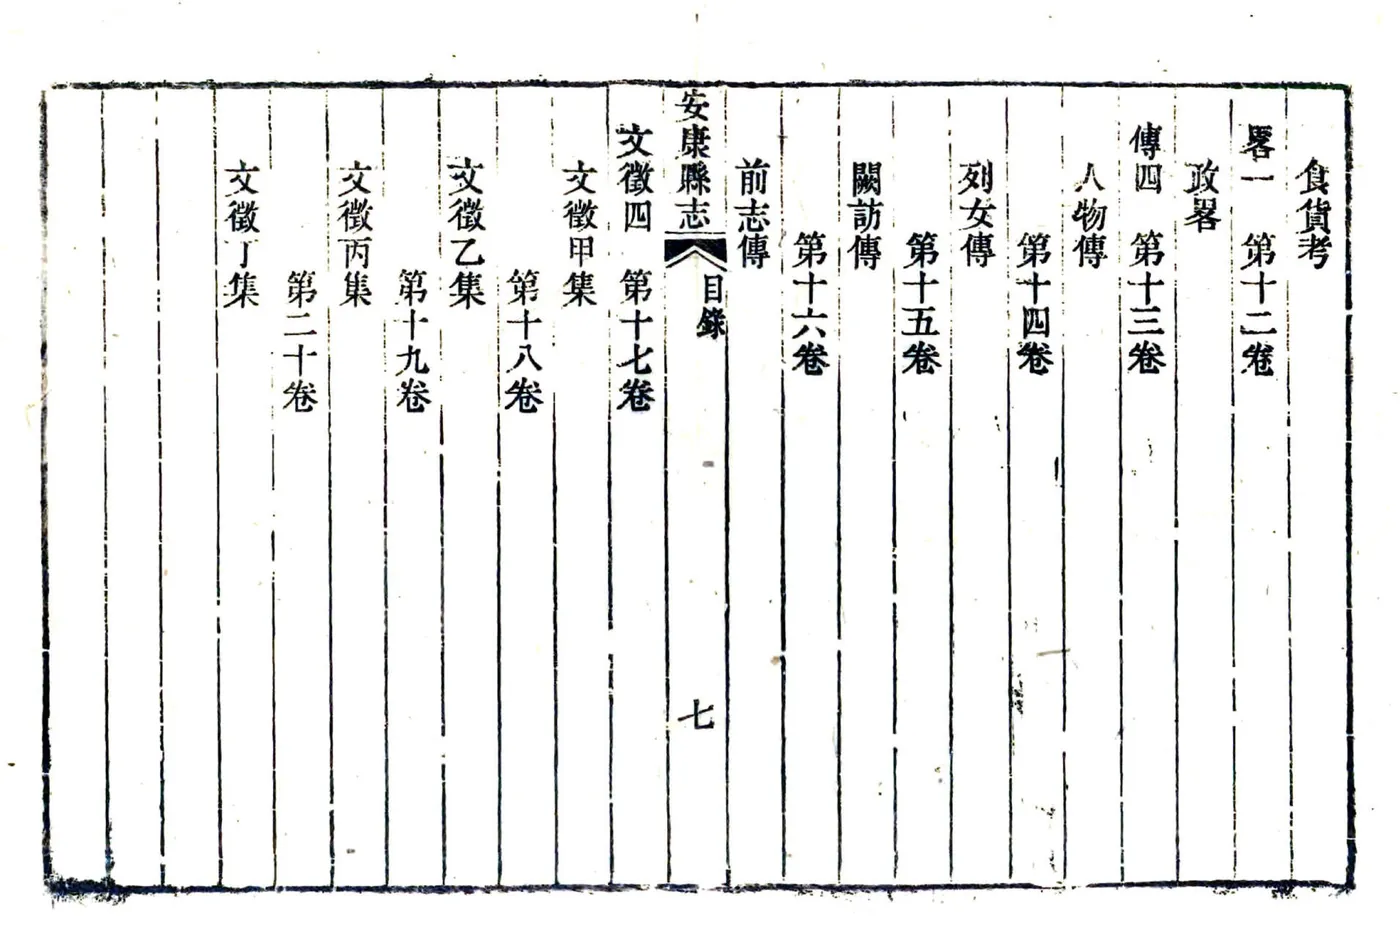 食貨考
畧一　第十二卷
政畧
傳四　第十三卷
人物傳
第十四卷
列女傳
第十五卷
闕訪傳
第十六卷
前志傳
安康縣志　目錄　七
文徵四　第十七卷
文徵甲集
第十八卷
文徵乙集
第十九卷
文徵丙集
第二十卷
文徵丁集